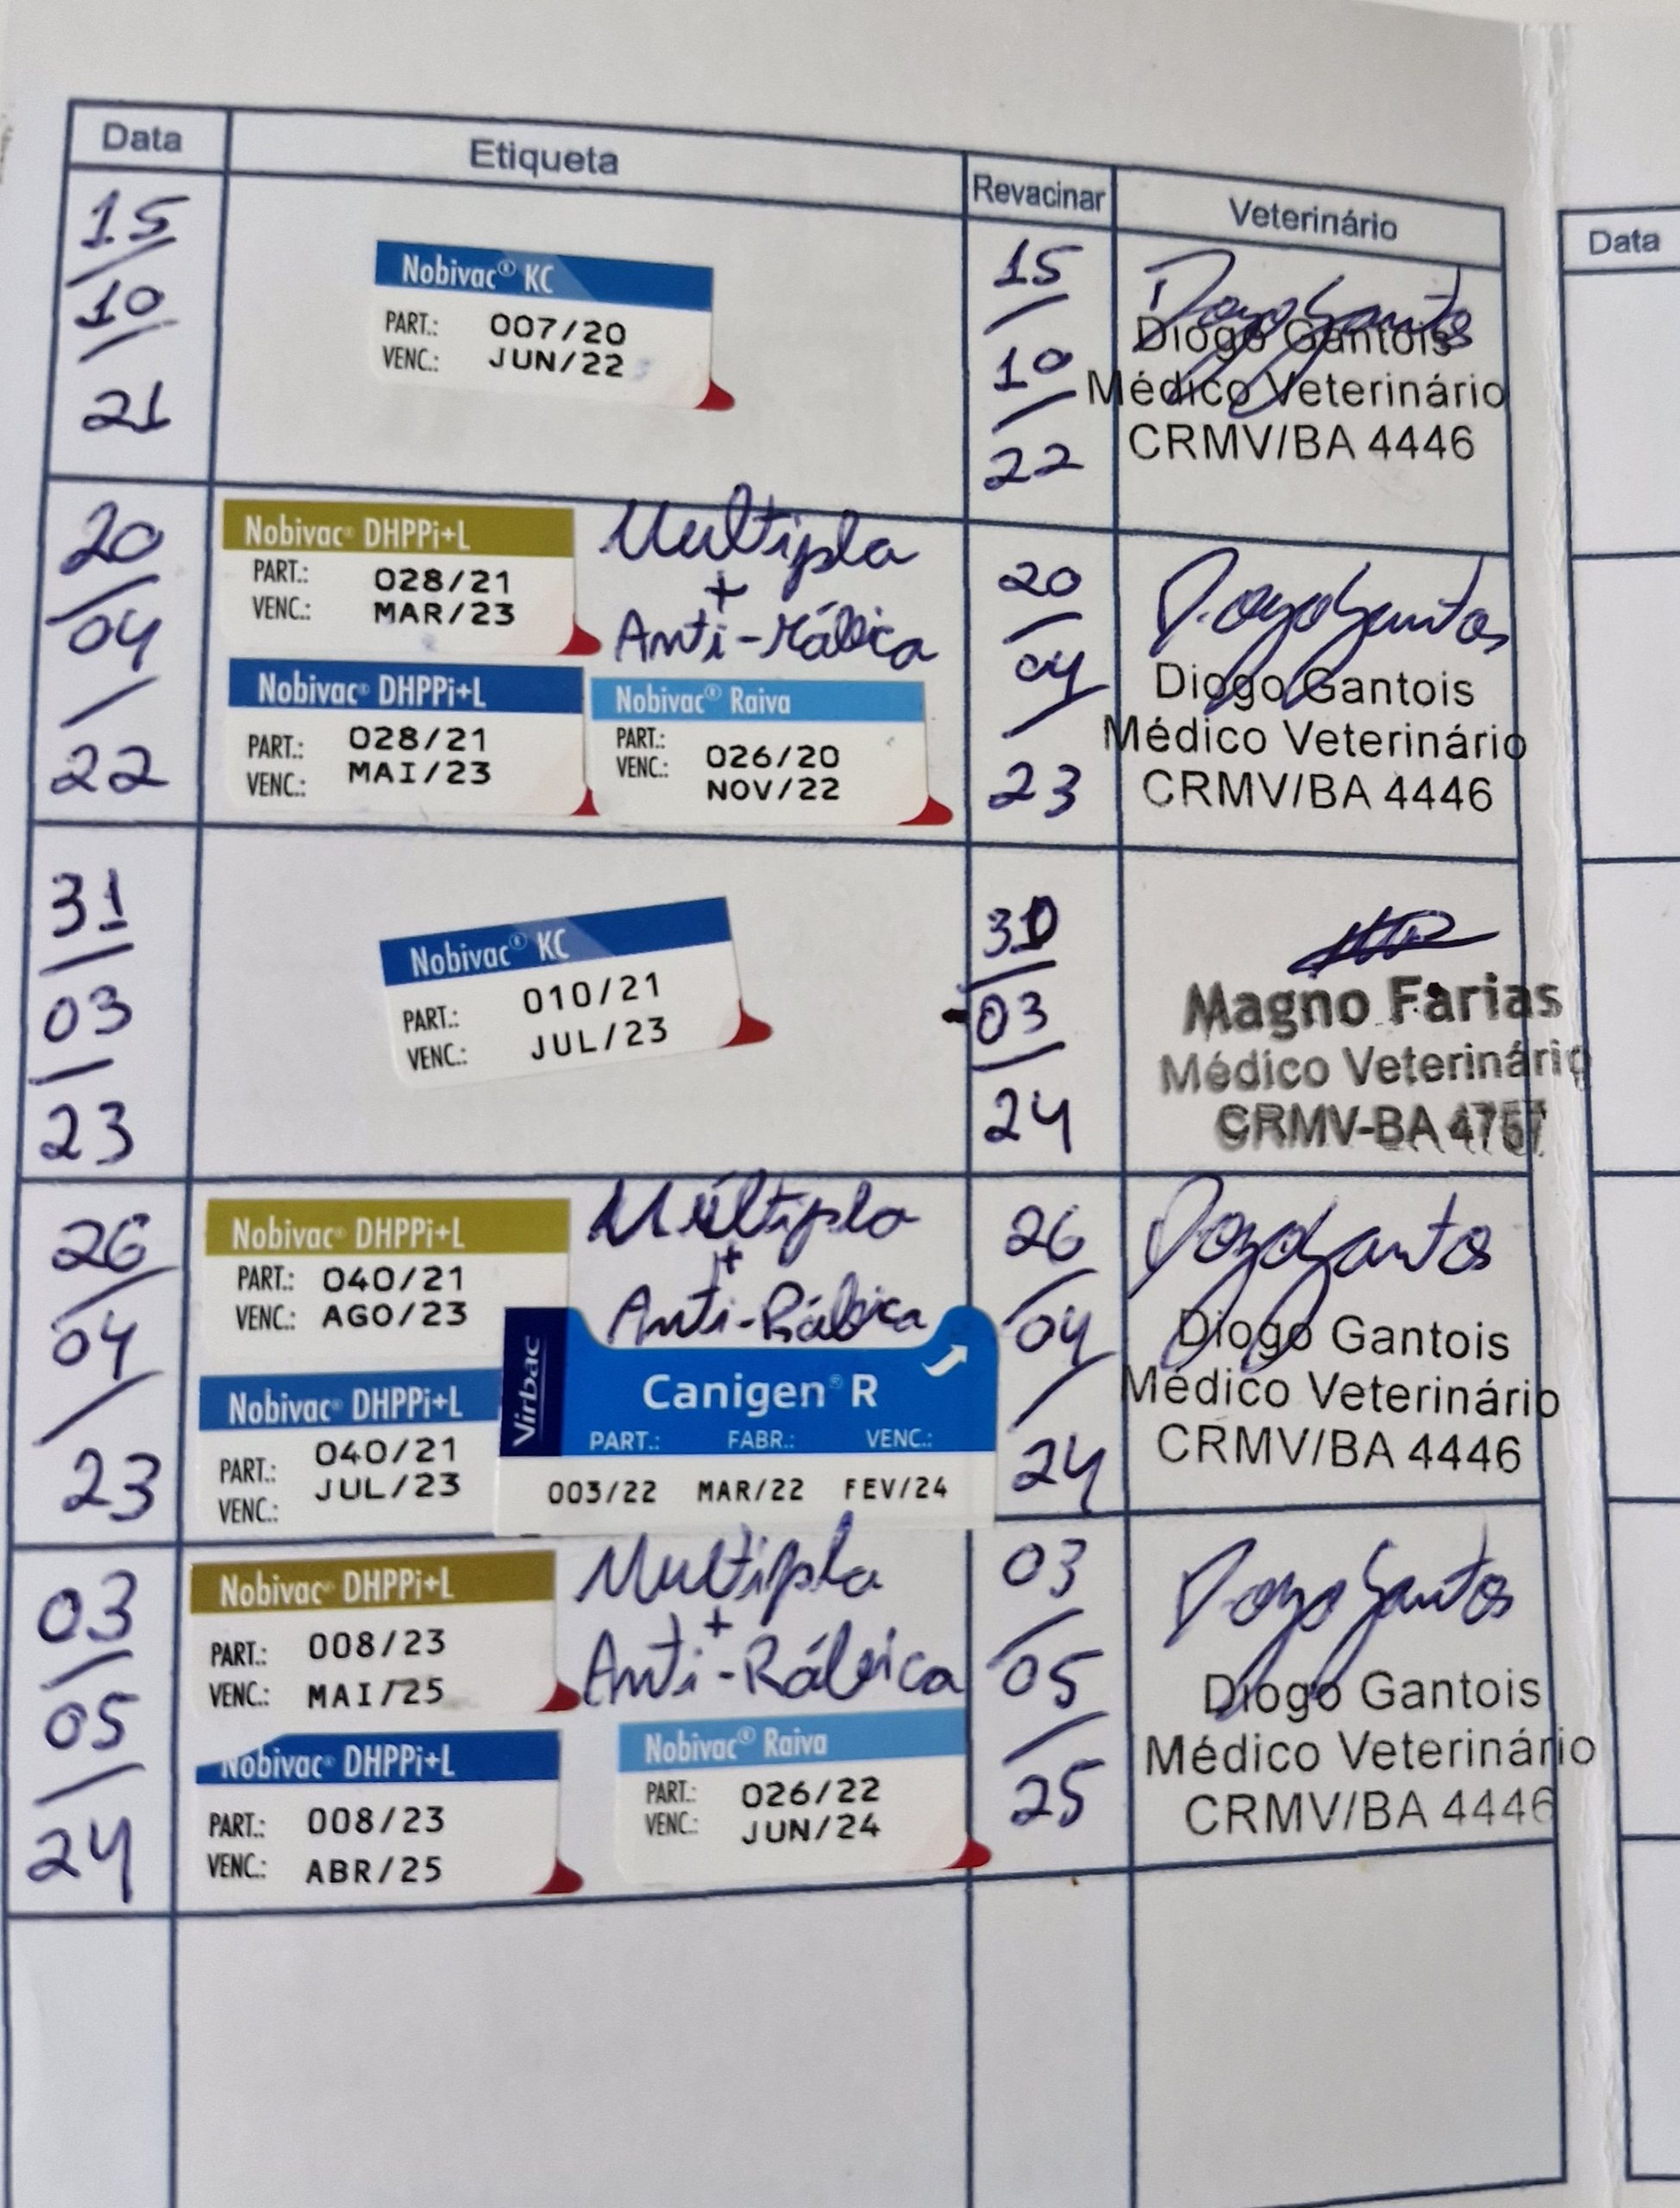 Data Etiqueta Revacinar Veterinário Data
15/10/21
Nobivac® KC
PART.: 007/20
VENC.: JUN/22
15/10/22
Diogo Gantois
Médico Veterinário
CRMV/BA 4446
20/04/22
Nobivac® DHPPi+L
PART.: 028/21
VENC.: MAR/23
Multipla
+
Anti-rábica
Nobivac® DHPPi+L
PART.: 028/21
VENC.: MAI/23
Nobivac® Raiva
PART.: 026/20
VENC.: NOV/22
20/04/23
Diogo Gantois
Médico Veterinário
CRMV/BA 4446
31/03/23
Nobivac® KC
PART.: 010/21
VENC.: JUL/23
03/24
Magno Farias
Médico Veterinário
CRMV-BA 4757
26/04/23
Nobivac® DHPPi+L
PART.: 040/21
VENC.: AGO/23
Múltipla
+
Anti-Rábica
Nobivac® DHPPi+L
PART.: 040/21
VENC.: JUL/23
Virbac
Canigen® R
PART.: FABR.: VENC.:
003/22 MAR/22 FEV/24
26/04/24
Diogo Gantois
Médico Veterinário
CRMV/BA 4446
03/05/24
Nobivac® DHPPi+L
PART.: 008/23
VENC.: MAI/25
Multipla
+
Anti-Rábica
Nobivac® DHPPi+L
PART.: 008/23
VENC.: ABR/25
Nobivac® Raiva
PART.: 026/22
VENC.: JUN/24
03/05/25
Diogo Gantois
Médico Veterinário
CRMV/BA 4446